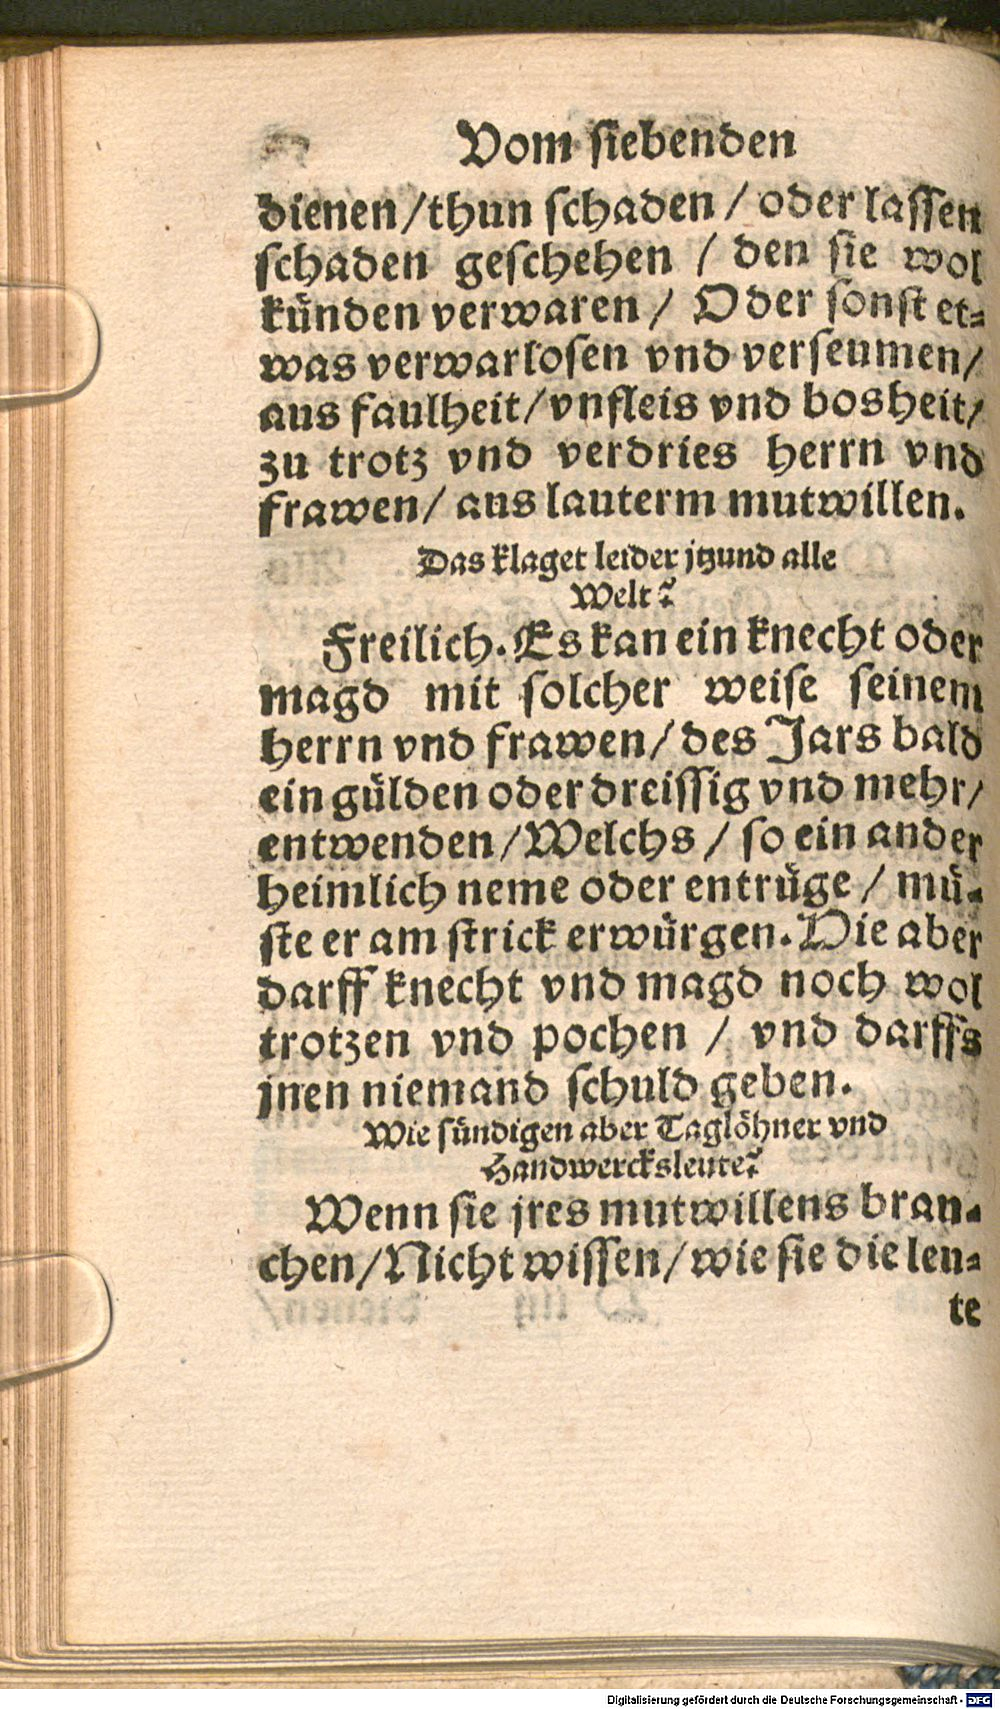 Vom siebenden
dienen/thun schaden / oder lassen
schaden geschehen / den sie wol
künden verwaren / Oder sonst et⸗
was verwarlosen vnd verseumen/
aus faulheit/vnfleis vnd bosheit/
zu trotz vnd verdries herrn vnd
frawen/ aus lauterm mutwillen.
Das klaget leider jtzund alle
Welt?
Freilich. Es kan ein knecht oder
magd mit solcher weise seinem
herrn vnd frawen/ des Jars bald
ein gülden oder dreissig vnd mehr/
entwenden/Welchs / so ein ander
heimlich neme oder entrüge / mü⸗
ste er am strick erwürgen. Die aber
darff knecht vnd magd noch wol
trotzen vnd pochen / vnd darffs
jnen niemand schuld geben.
Wie sündigen aber Taglöhner vnd
Handwercksleute?
Wenn sie jres mutwillens brau⸗
chen/Nicht wissen/wie sie die leu⸗
te
Digitalisierung gefördert durch die Deutsche Forschungsgemeinschaft - DFG